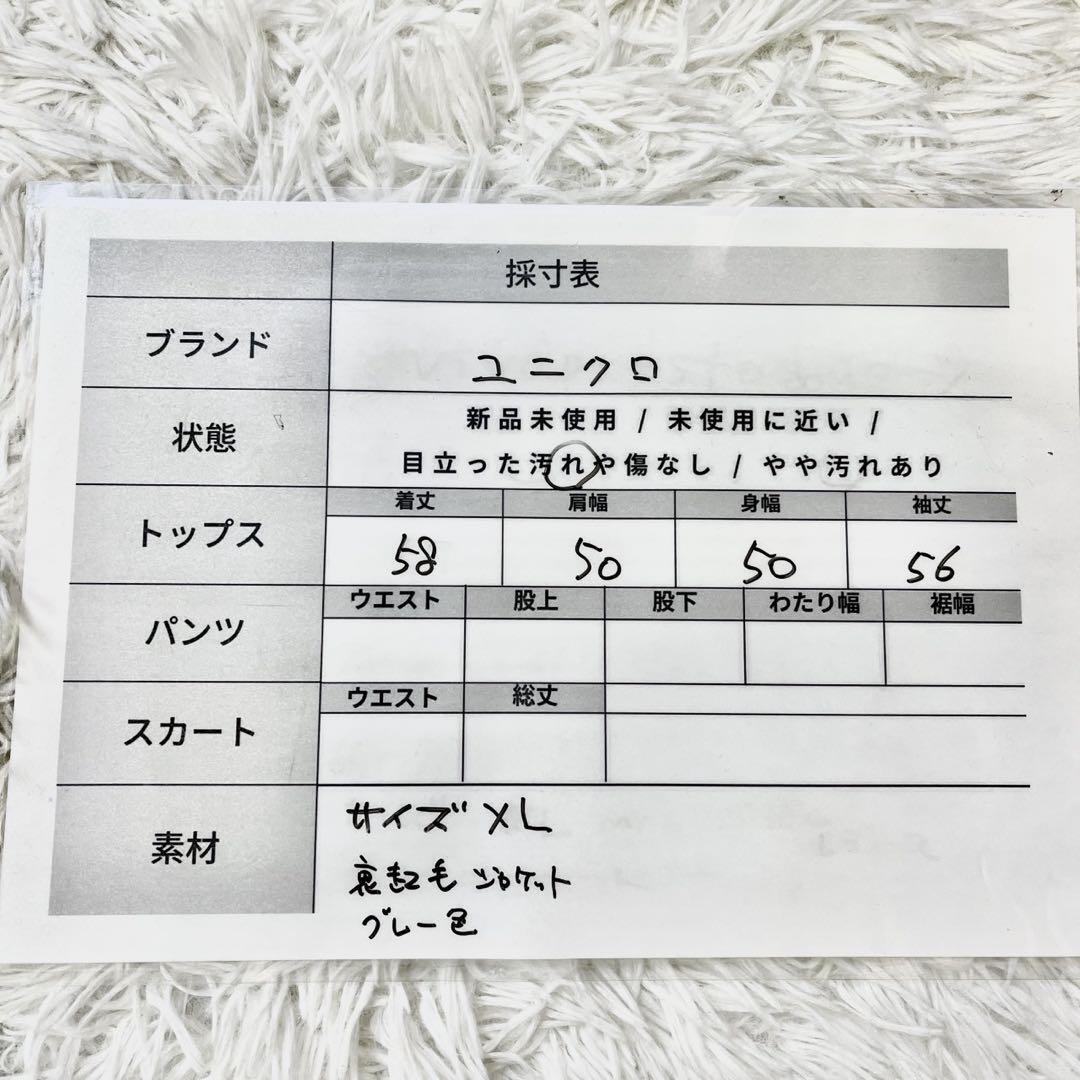 採寸表
ブランド
ユニクロ
状態
新品未使用 / 未使用に近い /
目立った汚れや傷なし / やや汚れあり
トップス
着丈 肩幅 身幅 袖丈
58 50 50 56
パンツ
ウエスト 股上 股下 わたり幅 裾幅
スカート
ウエスト 総丈
素材
サイズ XL
裏起毛 ジャケット
グレー色